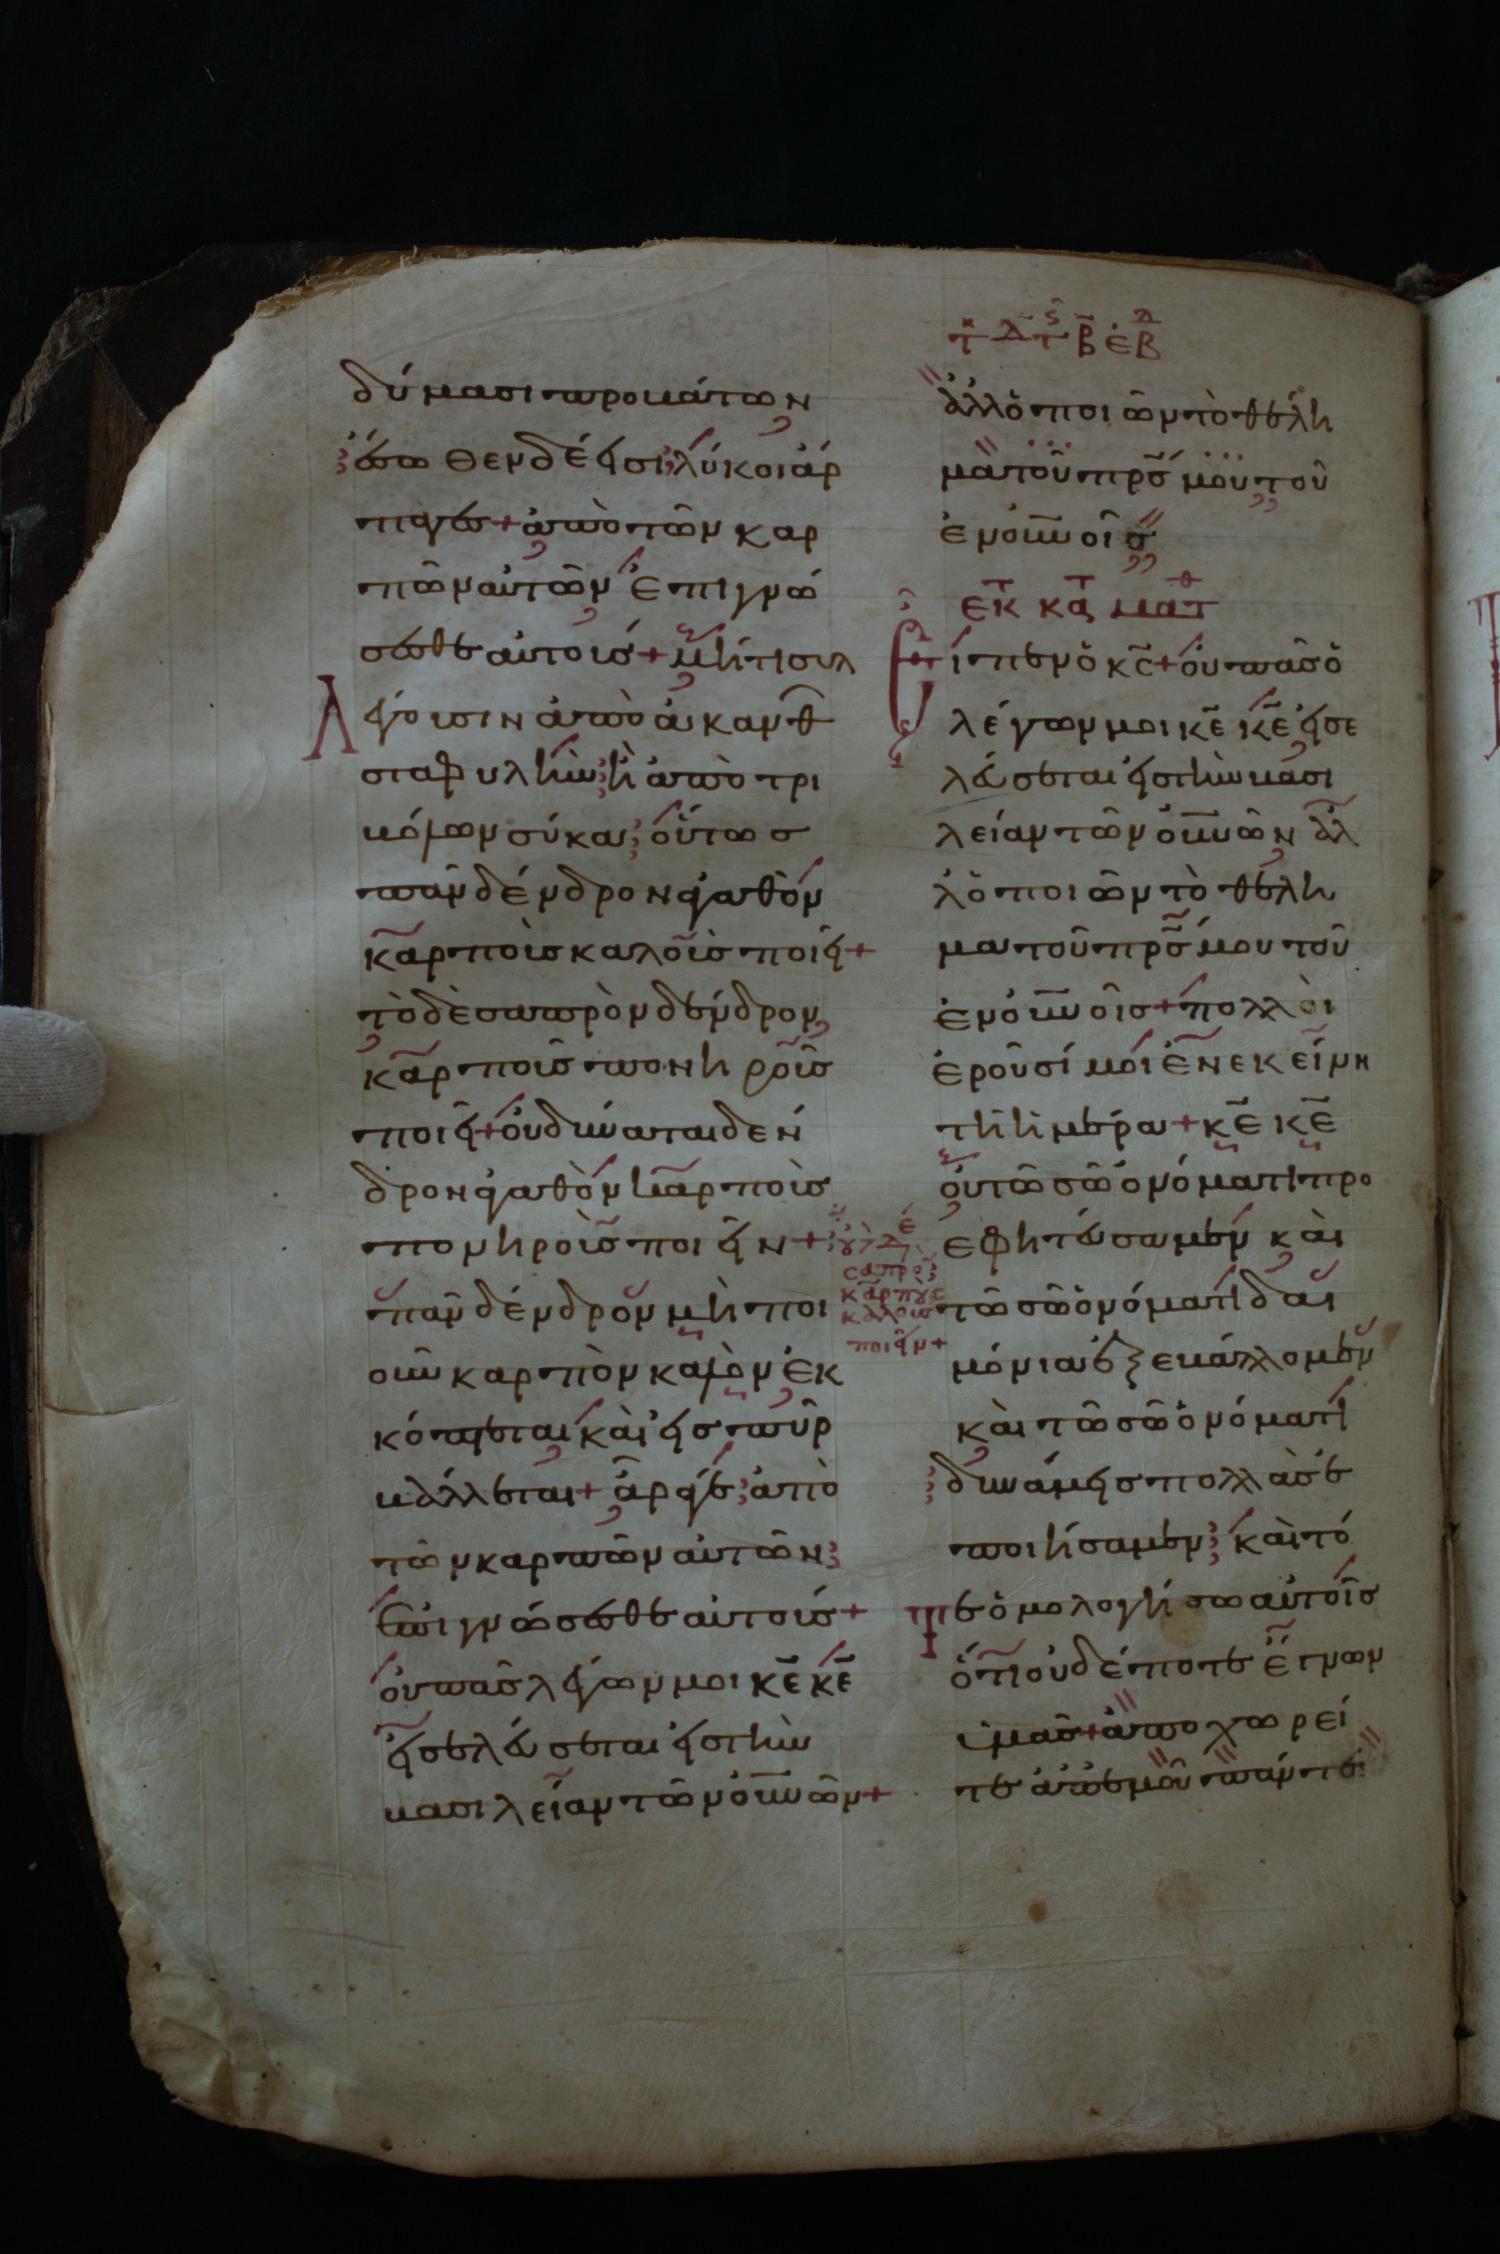 δύμασι προβάτων
ἔσωθεν δέ εἰσι λύκοι ἅρ
παγες + ἀπὸ τῶν καρ
πῶν αὐτῶν ἐπιγνώ
σεσθε αὐτούς + μήτι συλ
λέγουσιν ἀπὸ ἀκανθ
σταφυλὴν ἢ ἀπὸ τρι
βόλων σύκα οὕτως
πᾶν δένδρον ἀγαθὸν
καρποὺς καλοὺς ποιεῖ +
τὸ δὲ σαπρὸν δένδρον
καρποὺς πονηροὺς
ποιεῖ + οὐ δύναται δέν
δρον ἀγαθὸν καρποὺς
πονηροὺς ποιεῖν +
πᾶν δένδρον μὴ ποι
οῦν καρπὸν καλὸν ἐκ
κόπτεται καὶ εἰς πῦρ
βάλλεται + ἄρα γε ἀπὸ
τῶν καρπῶν αὐτῶν
ἐπιγνώσεσθε αὐτούς +
οὐ πᾶς λέγων μοι κε κε
εἰσελεύσεται εἰς τὴν
βασιλείαν τῶν οὐνῶν +
σαπρὸ
καρποὺς
καλοὺς
ποιεῖν +
ἀλλ ὁ ποιῶν τὸ θέλη
μα τοῦ πρς μου τοῦ
ἐν οὐνοῖς
ἐκ κατ ματθ
Εἶπεν ὁ κς + οὐ πᾶς ὁ
λέγων μοι κε κε εἰσε
λεύσεται εἰς τὴν βασι
λείαν τῶν οὐνῶν ἀλ
λ ὁ ποιῶν τὸ θέλη
μα τοῦ πρς μου τοῦ
ἐν οὐνοῖς + πολλοὶ
ἐροῦσί μοι ἐν ἐκείνη
τῇ ἡμέρα + κε κε
οὐ τῶ σῶ ὀνόματι προ
εφητεύσαμεν καὶ
τῶ σῶ ὀνόματι δαι
μόνια ἐξεβάλλομεν
καὶ τῶ σῶ ὀνόματι
δυνάμεις πολλὰς ἐ
ποιήσαμεν καὶ τό
τε ὁμολογήσω αὐτοῖς
ὅτι οὐδέποτε ἔγνων
ὑμᾶς + ἀποχωρεί
τε ἀπ ἐμοῦ πάντες